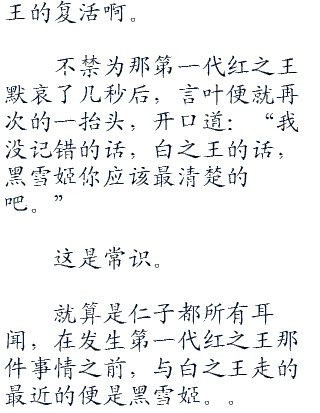 王的复活啊。
不禁为那第一代红之王
默哀了几秒后，言叶便就再
次的一抬头，开口道：“我
没记错的话，白之王的话，
黑雪姬你应该最清楚的
吧。”
这是常识。
就算是仁子都所有耳
闻，在发生第一代红之王那
件事情之前，与白之王走的
最近的便是黑雪姬。。